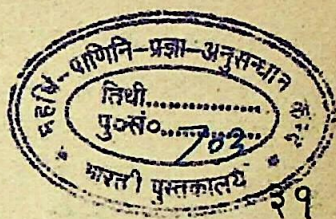 महर्षि-पाणिनि-प्रज्ञा-अनुसन्धान
तिथी..............
पु०सं०..............703
भारती पुस्तकालय
३१